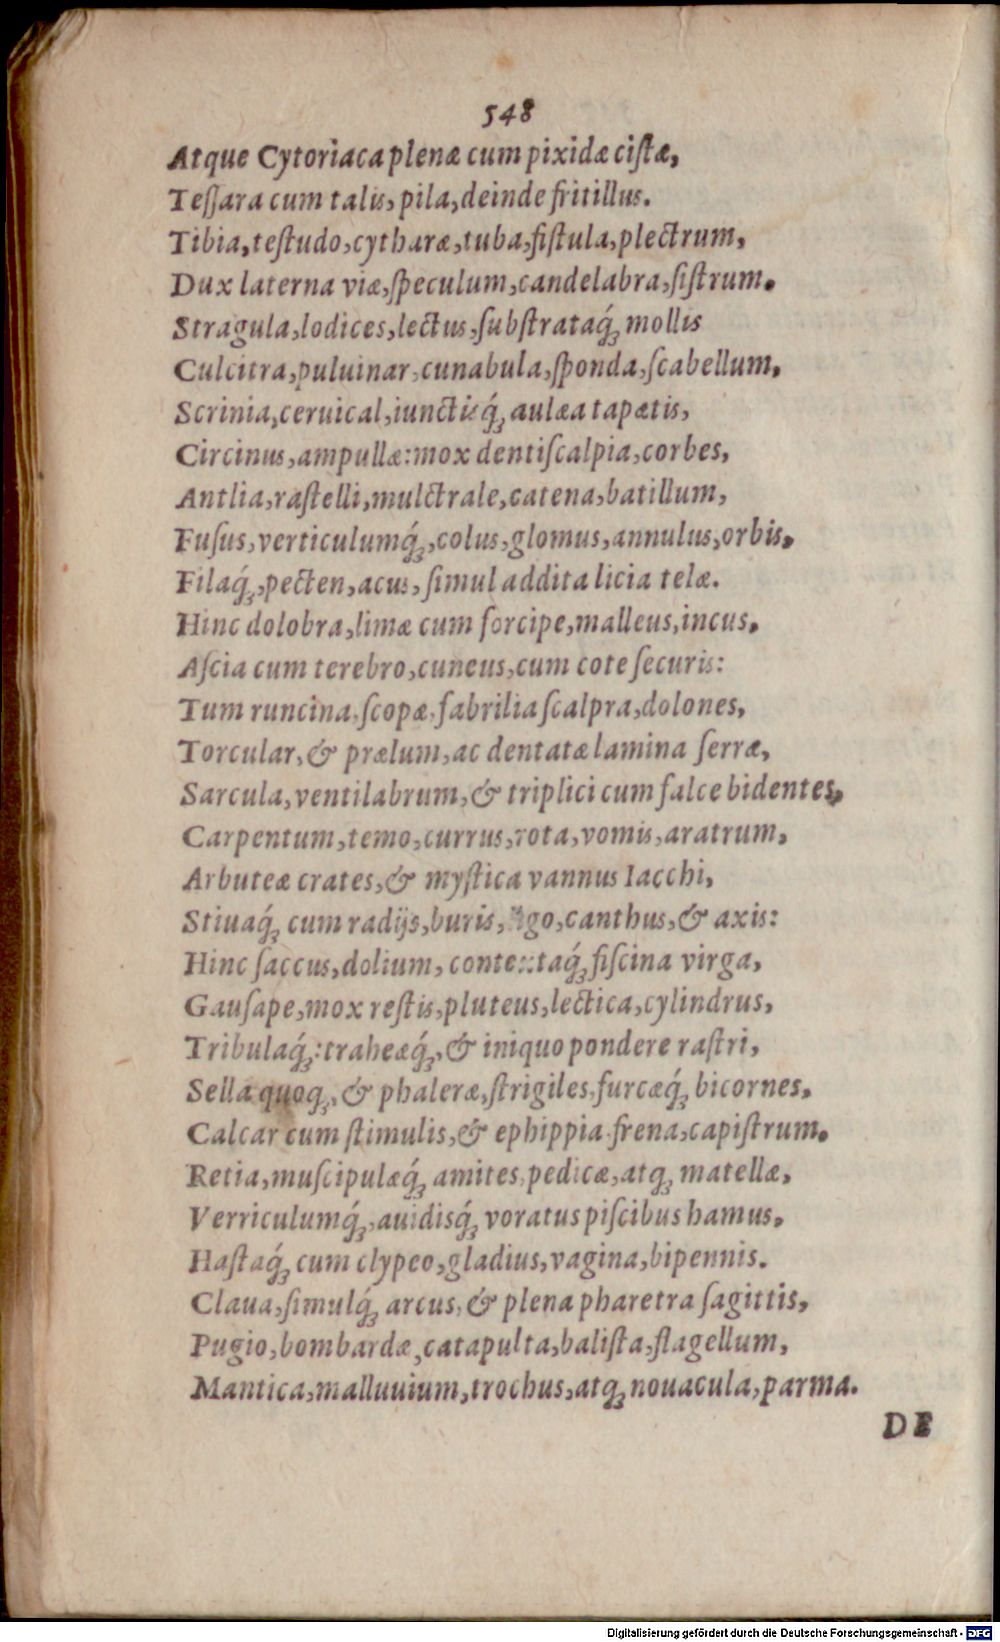 548
Atque Cytoriaca plenæ cum pixidæ cistæ,
Teſſara cum talis, pila, deinde fritillus.
Tibia, teſtudo, cytharæ, tuba, fiſtula, plectrum,
Dux laterna viæ, ſpeculum, candelabra, ſiſtrum.
Stragula, lodices, lectus, ſubſtrataq́; mollis
Culcitra, puluinar, cunabula, ſponda, ſcabellum,
Scrinia, ceruical, iunctisq́; aulæa tapætis,
Circinus, ampullæ: mox dentiſcalpia, corbes,
Antlia, raſtelli, mulctrale, catena, batillum,
Fuſus, verticulumq́;, colus, glomus, annulus, orbis,
Filaq́;, pecten, acus, ſimul addita licia telæ.
Hinc dolobra, limæ cum forcipe, malleus, incus,
Aſcia cum terebro, cuneus, cum cote ſecuris:
Tum runcina, ſcopæ, fabrilia ſcalpra, dolones,
Torcular, & prælum, ac dentatæ lamina ſerræ,
Sarcula, ventilabrum, & triplici cum falce bidentes,
Carpentum, temo, currus, rota, vomis, aratrum,
Arbuteæ crates, & myſtica vannus Iacchi,
Stiuaq́; cum radijs, buris, ligo, canthus, & axis:
Hinc ſaccus, dolium, contextaq́; fiſcina virga,
Gauſape, mox reſtis, pluteus, lectica, cylindrus,
Tribulaq́;: traheæq́;, & iniquo pondere raſtri,
Sella quoq;, & phaleræ, ſtrigiles, furcæq́; bicornes,
Calcar cum ſtimulis, & ephippia, frena, capiſtrum.
Retia, muſcipulæq́; amites, pedicæ, atq; matellæ,
Verriculumq́;, auidisq́; voratus piſcibus hamus,
Haſtaq́; cum clypeo, gladius, vagina, bipennis.
Claua, ſimulq́; arcus, & plena pharetra ſagittis,
Pugio, bombardæ, catapulta, baliſta, flagellum,
Mantica, malluuium, trochus, atq; nouacula, parma.
DE
Digitalisierung gefördert durch die Deutsche Forschungsgemeinschaft - DFG